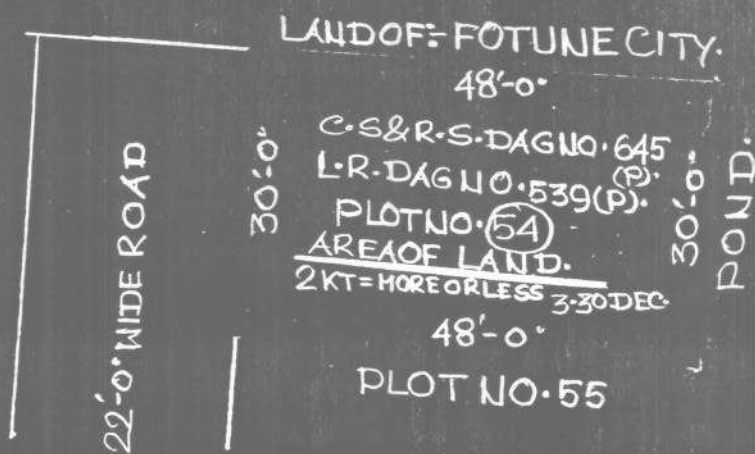 LAND OF:- FOTUNE CITY.
48'-0"
C.S & R.S. DAG NO. 645
(P).
L.R. DAG NO. 539(P).
PLOT NO. 54
AREA OF LAND.
2 KT = MORE OR LESS 3.30 DEC.
48'-0"
PLOT NO. 55
30'-0"
30'-0"
POND.
22'-0" WIDE ROAD